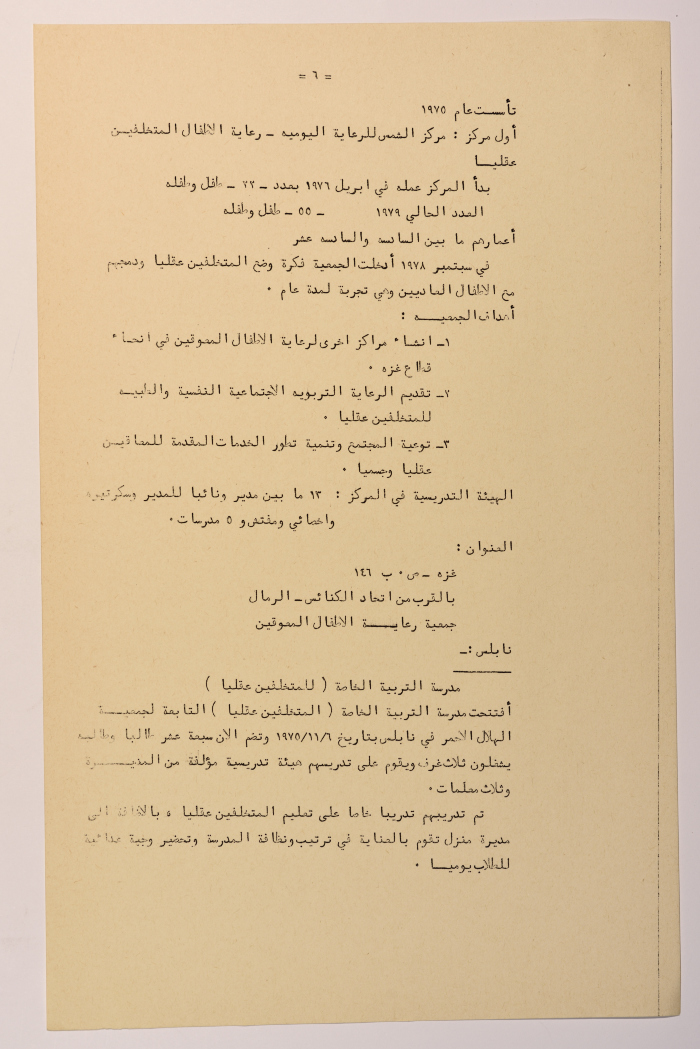 = ٦ =
تأسست عام ١٩٧٥
أول مركز : مركز الشمس للرعاية اليوميه ــ رعاية الاطفال المتخلفيـن
عقليــا
بدأ المركز عمله في ابريل ١٩٧٦ بعدد ــ ٢٢ ــ طفل وطفله
العدد الحالي ١٩٧٩ ــ ٥٥ ــ طفل وطفله
أعمارهم ما بين السادسه والسادسه عشر
في سبتمبر ١٩٧٨ أدخلت الجمعية فكرة وضع المتخلفين عقليا ودمجهم
مع الاطفال العاديين وهي تجربة لمدة عام ٠
أهداف الجمعيـــه :
١ــ انشاء مراكز اخرى لرعاية الاطفال المعوقين في انحاء
قطاع غزه ٠
٢ــ تقديم الرعاية التربويه الاجتماعية النفسية والطبيــه
للمتخلفين عقليا ٠
٣ــ توعية المجتمع وتنمية تطور الخدمات المقدمة للمعاقيــن
عقليا وجسميا ٠
الهيئة التدريسية في المركز : ١٣ ما بين مدير ونائبا للمدير وسكرتيره
واخصائي ومفتش و ٥ مدرسات ٠
العنوان :
غزه ــ ص ٠ ب ١٤٦
بالقرب من اتحاد الكنائس ــ الرمال
جمعية رعايـــــة الاطفال المعوقين
نابلس :ــ
مدرسة التربية الخاصة ( للمتخلفين عقليا )
أفتتحت مدرسة التربية الخاصة ( المتخلفين عقليا ) التابعة لجمعيـــــة
الهلال الاحمر في نابلس بتاريخ ١٩٧٥/١١/٦ وتضم الان سبعة عشر طالبا وطالبــه
يشغلون ثلاث غرف ويقوم على تدريسهم هيئة تدريسية مؤلفة من المديــــرة
وثلاث معلمات ٠
تم تدريبهم تدريبا خاصا على تعليم المتخلفين عقليا ه بالاضافة الى
مديرة منزل تقوم بالعناية في ترتيب ونظافة المدرسة وتحضير وجبة غذائية
للطلاب يوميــا ٠